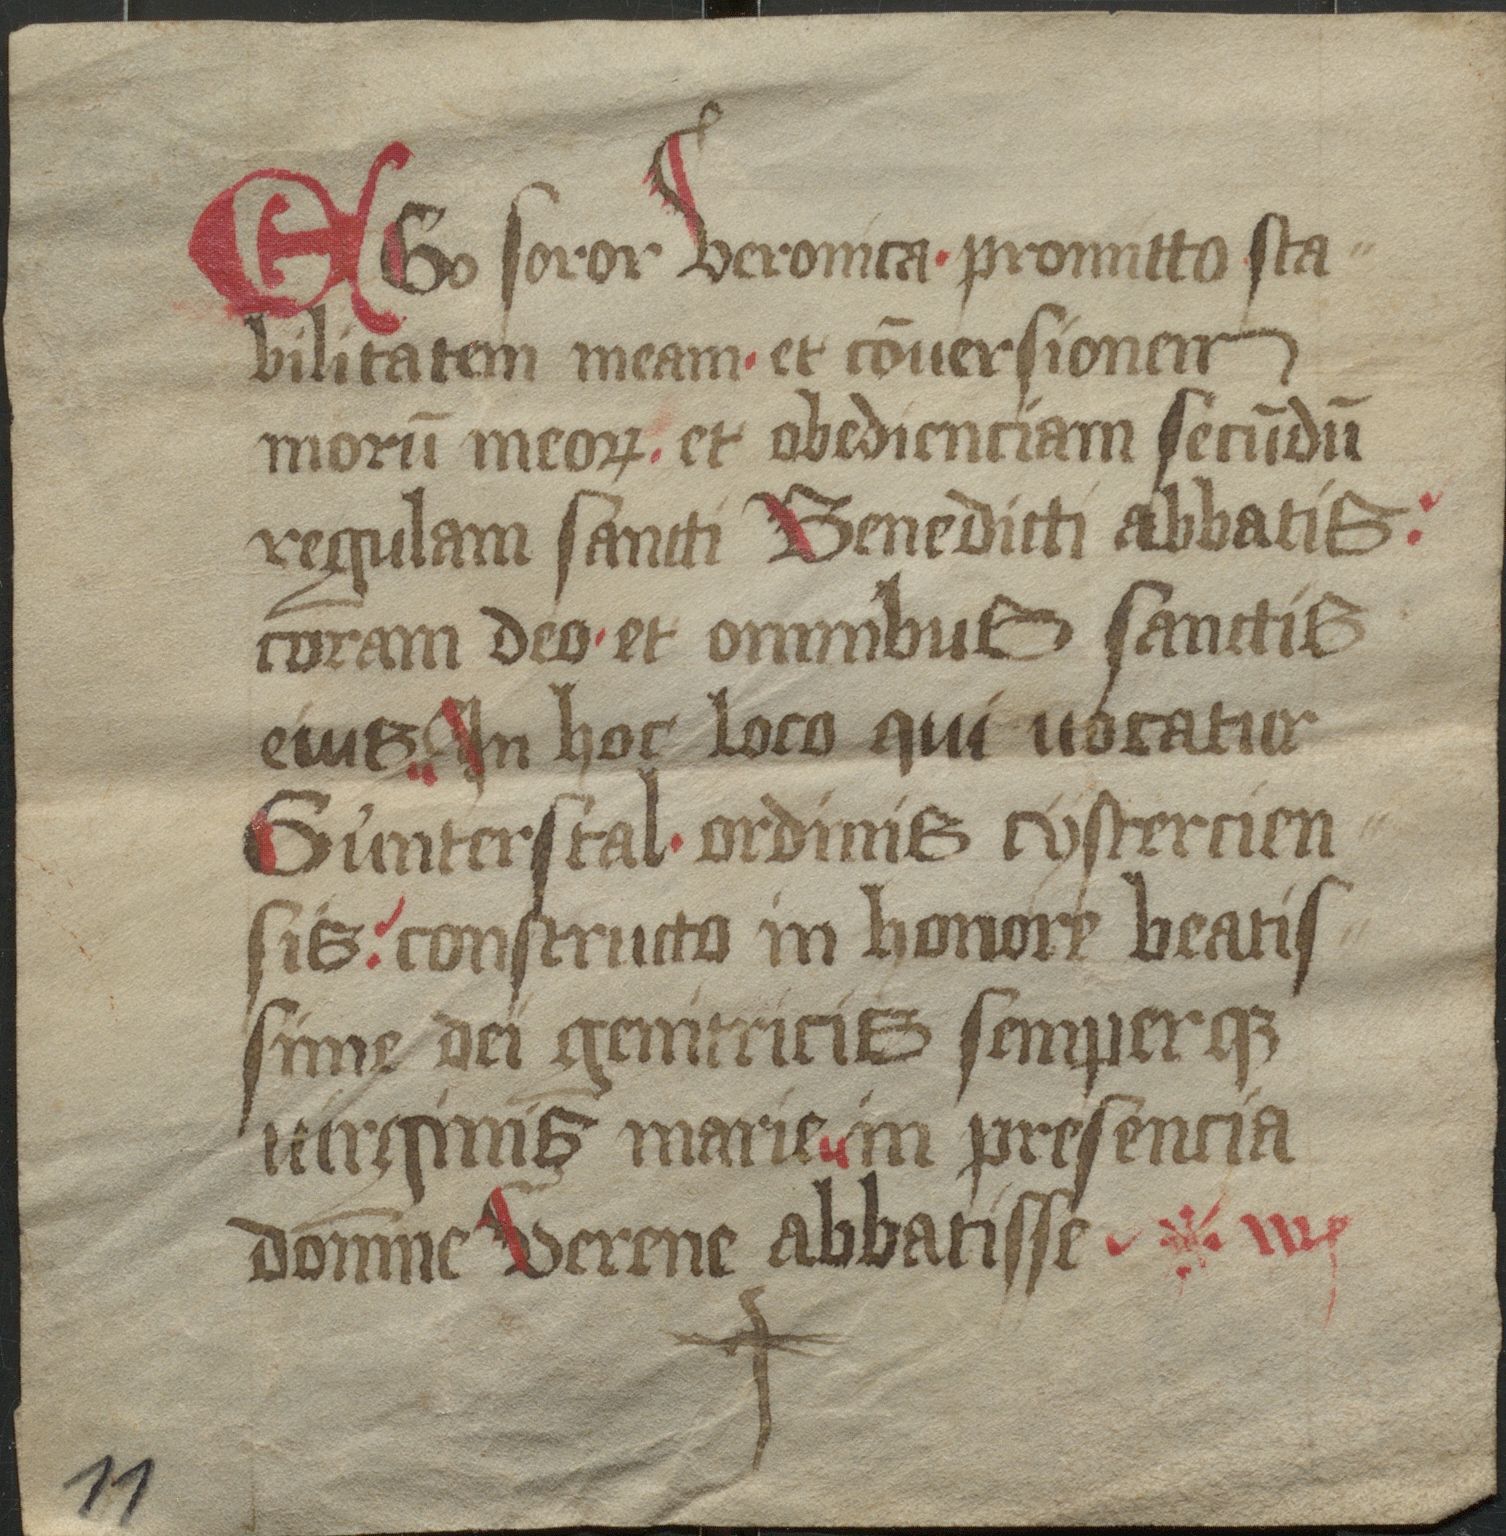 EGo soror Veronica · promitto sta⸗
bilitatem meam · et cōuersionem
morū meoꝝ . et obedienciam secūdū
regulam sancti Benedicti abbatis :
coram deo · et omnibus sanctis
eius .. In hoc loco qui uocatur
Gu̍nterstal · ordinis cystercien⸗
sis : constructo in honore beatis⸗
sime dei genitricis semperqꝫ
uirginis marie .. in presencia
dom̄ne Verene abbatisse
11